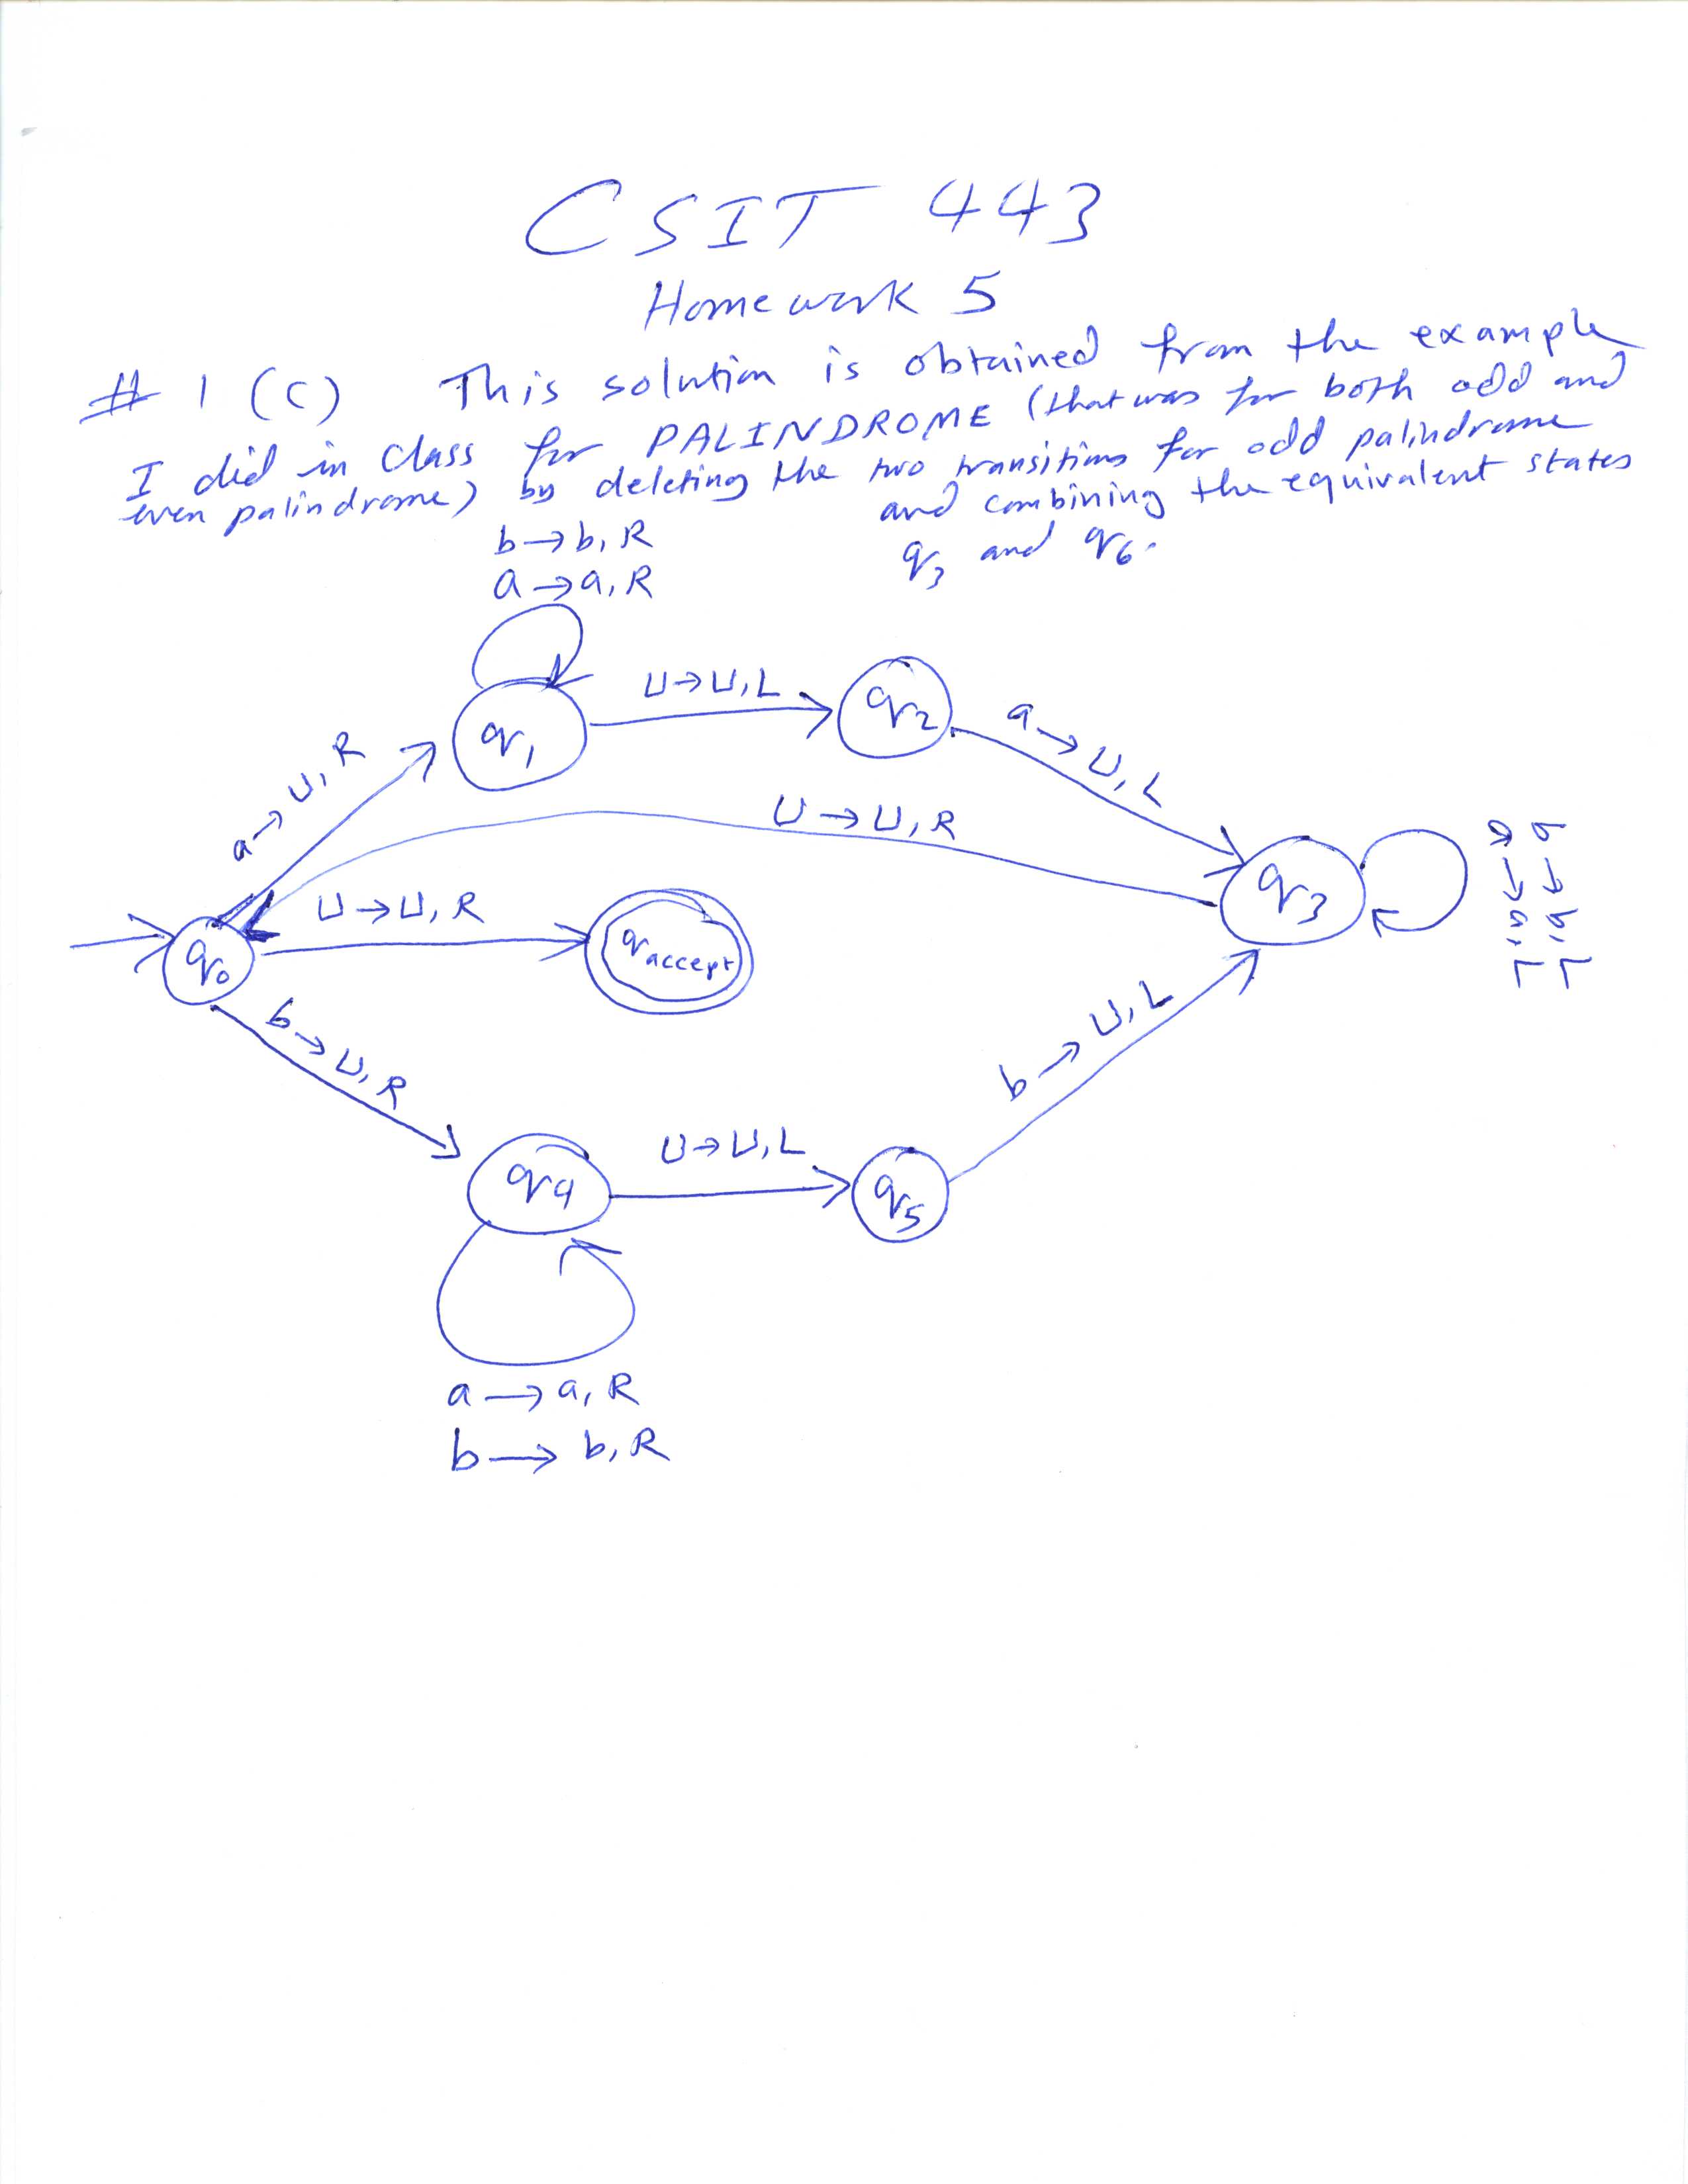 CSIT 443
Homework 5
# 1 (C) This solution is obtained from the example
I did in class for PALINDROME (that was for both odd and
even palindrome) by deleting the two transitions for odd palindrome
and combining the equivalent states
q3 and q6.
b→b, R
a→a, R
q1
⊔→⊔, L
q2
a→⊔, L
a→⊔, R
⊔→⊔, R
q3
a→a, L
b→b, L
q0
⊔→⊔, R
qaccept
b→⊔, R
b→⊔, L
q4
⊔→⊔, L
q5
a→a, R
b→b, R